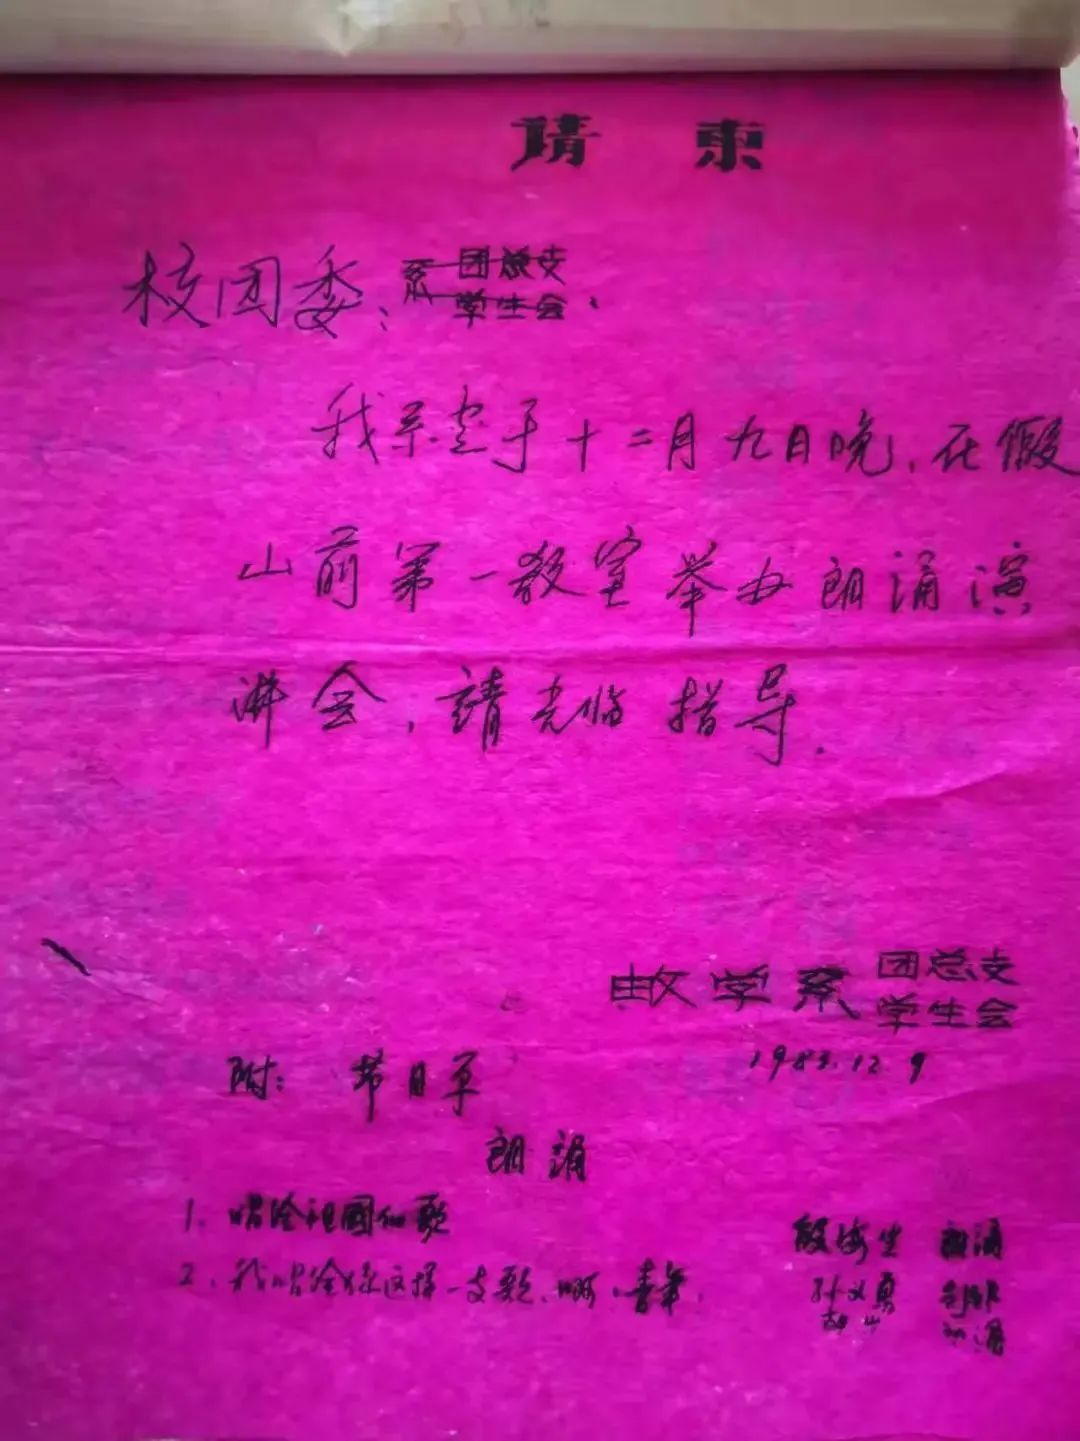 请柬
校团委：系团总支学生会：
我系定于十二月九日晚，在假
山前第一教室举办朗诵演
讲会，請光临指导．
政学系团总支学生会
1983.12.9
附：节目单
朗诵
1. 唱给祖国的歌 殷海生 朗诵
2、我唱给你这样一支歌，啊，青年， 孙义勇 创作
朗诵